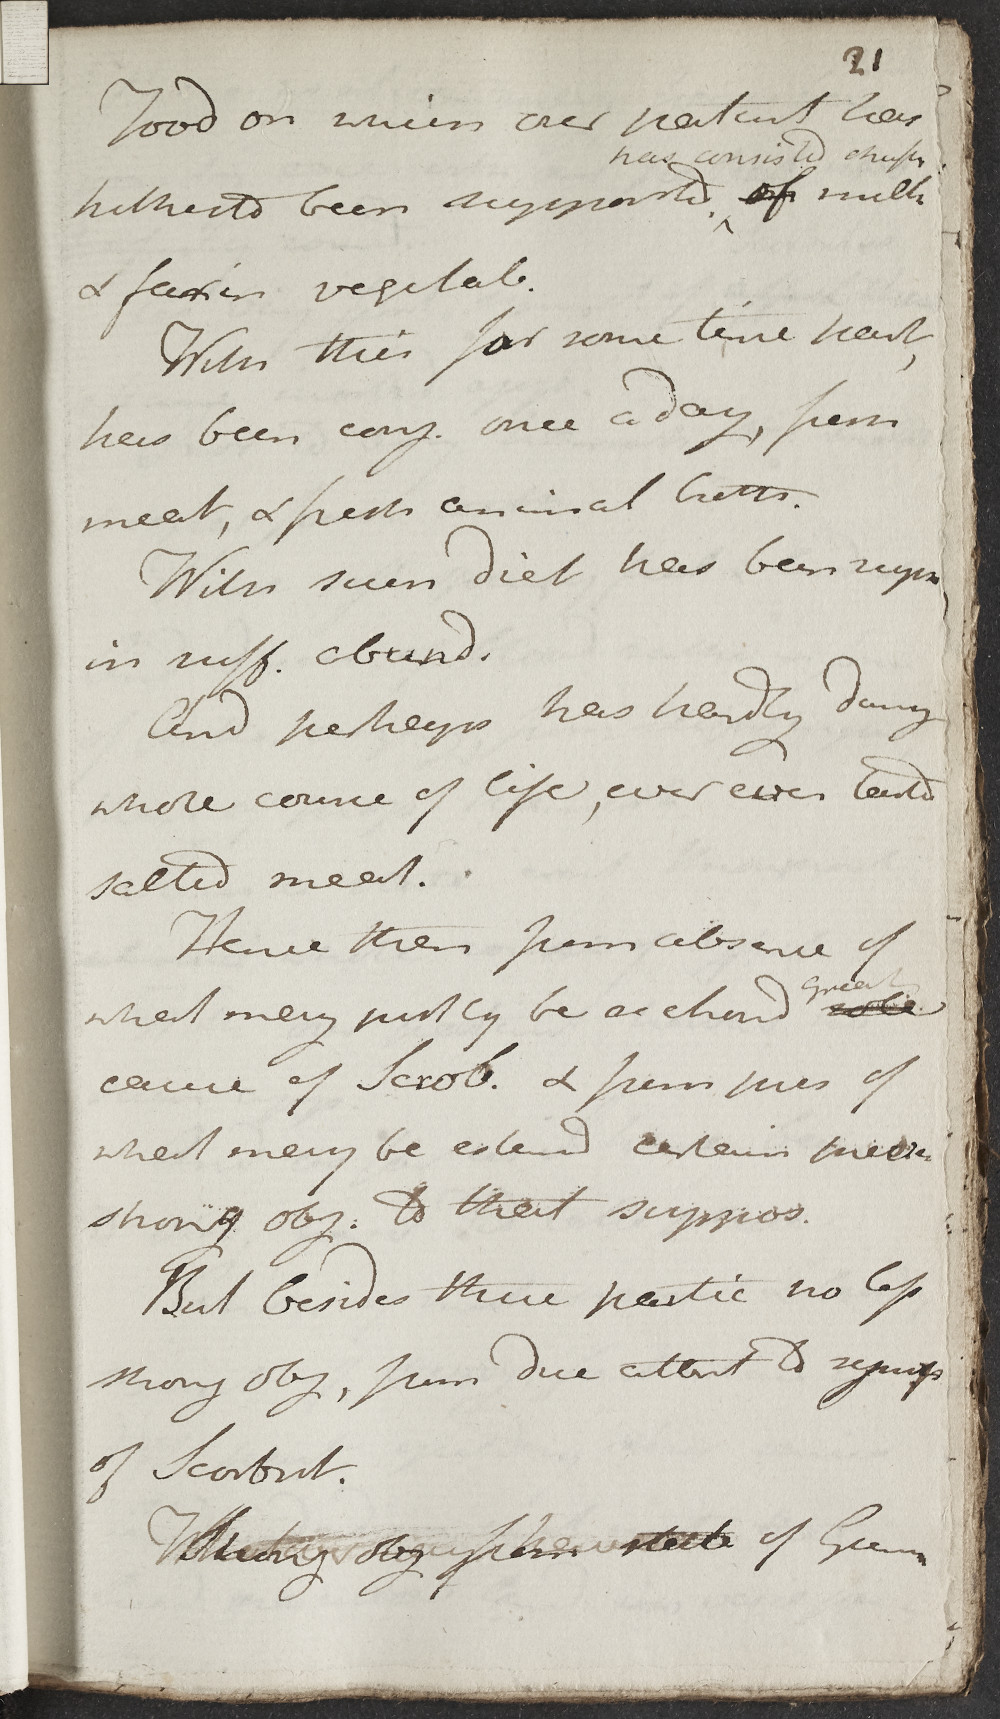 21
Food on which our patient has
has consisted chiefly
hitherto been supported, of milk
& farin vegetab.
With this for some time past,
has been conj. once a day, from
meat, & fresh animal broths.
With such diet has been supp
in suff. abund.
And perhaps has hardly during
whole course of life, ever even tasted
salted meat.
Hence then from absence of
great
what may justly be reckond sole
cause of Scrob. & from pres of
what may be esteemd certain
strong obj. to that suppos.
But besides these partic no less
strong obj, from due attent to sympt
of Scorbut.
strong obj from state of Gums